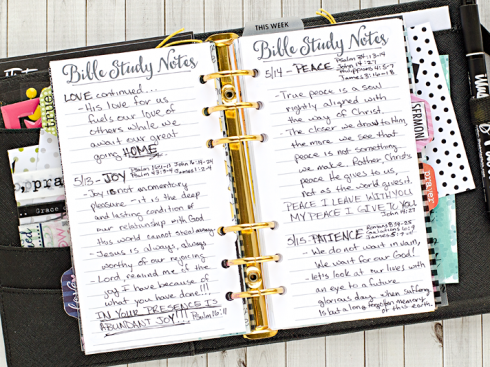 Bible Study Notes
LOVE continued...
- His love for us
fuels our love of
others while we
await our great
going HOME
5/13 - JOY
James 1:2-4
- Joy is not a momentary
pleasure - it is the deep
and lasting condition of
our relationship with God
this world cannot steal away
- Jesus is always, always
worthy of our rejoicing
- Lord, remind me of the
joy I have because of
what you have done!!!
IN YOUR PRESENCE IS
ABUNDANT JOY!!! Psalm 16:11
THIS WEEK
Bible Study Notes
5/14 - PEACE Psalm 34:13-14
John 14:27
Philippians 4:5-7
James 3:16-18
- True peace is a soul
rightly aligned with
the way of Christ
- The closer we draw to Him
the more we see that
peace is not something
we make. Rather, Christ's
peace He gives to us,
not as the world gives it
PEACE I LEAVE WITH YOU
MY PEACE I GIVE TO YOU
John 14:27
5/15 - PATIENCE Romans 8:25
Galatians 6:9
James 5:7-8
- We do not wait in vain,
We wait for our God!
- let's look at our lives with
an eye to a future
glorious day when suffering
is but a long forgotten memory
of this earth.
SERMON
prayer
pray
Grace